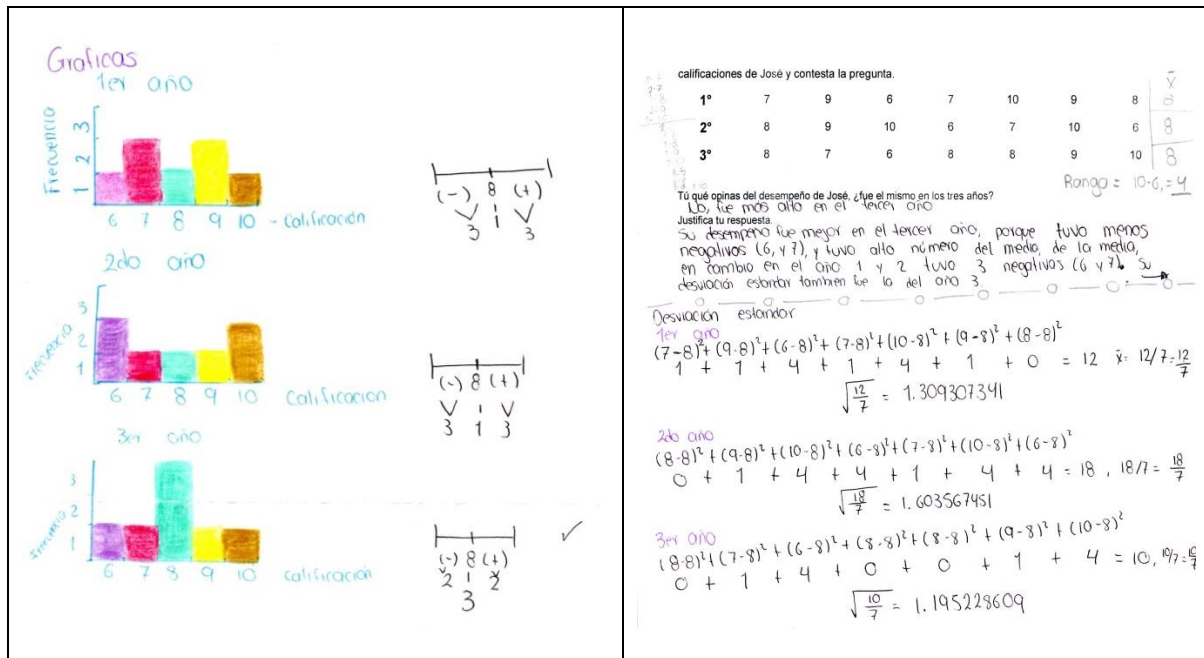 Graficas
1er año
Frecuencia
3
2
1
6 7 8 9 10 - Calificación
(-) 8 (+)
3 1 3
2do año
3
2
1
Frecuencia
6 7 8 9 10 Calificación
(-) 8 (+)
3 1 3
3er año
3
2
1
Frecuencia
6 7 8 9 10 calificación
(-) 8 (+)
2 1 2
3
calificaciones de José y contesta la pregunta.
x̄
1° 7 9 6 7 10 9 8 8
2° 8 9 10 6 7 10 6 8
3° 8 7 6 8 8 9 10 8
Rango = 10-6, = 4
Tú qué opinas del desempeño de José, ¿fue el mismo en los tres años?
No, fue más alto en el tercer año
Justifica tu respuesta.
Su desempeño fue mejor en el tercer año, porque tuvo menos
negativos (6, y 7), y tuvo alto número del medio, de la media,
en cambio en el año 1 y 2 tuvo 3 negativos (6 y 7). Su
desviación estandar tambien fue la del año 3.
Desviación estandar
1er año
(7-8)²+(9-8)²+(6-8)²+(7-8)²+(10-8)²+(9-8)²+(8-8)²
1 + 1 + 4 + 1 + 4 + 1 + 0 = 12 x̄: 12/7=12/7
√12/7 = 1.309307341
2do año
(8-8)²+(9-8)²+(10-8)²+(6-8)²+(7-8)²+(10-8)²+(6-8)²
0 + 1 + 4 + 4 + 1 + 4 + 4 = 18, 18/7= 18/7
√18/7 = 1.603567451
3er año
(8-8)²+(7-8)²+(6-8)²+(8-8)²+(8-8)²+(9-8)²+(10-8)²
0 + 1 + 4 + 0 + 0 + 1 + 4 = 10, 10/7=
√10/7 = 1.195228609